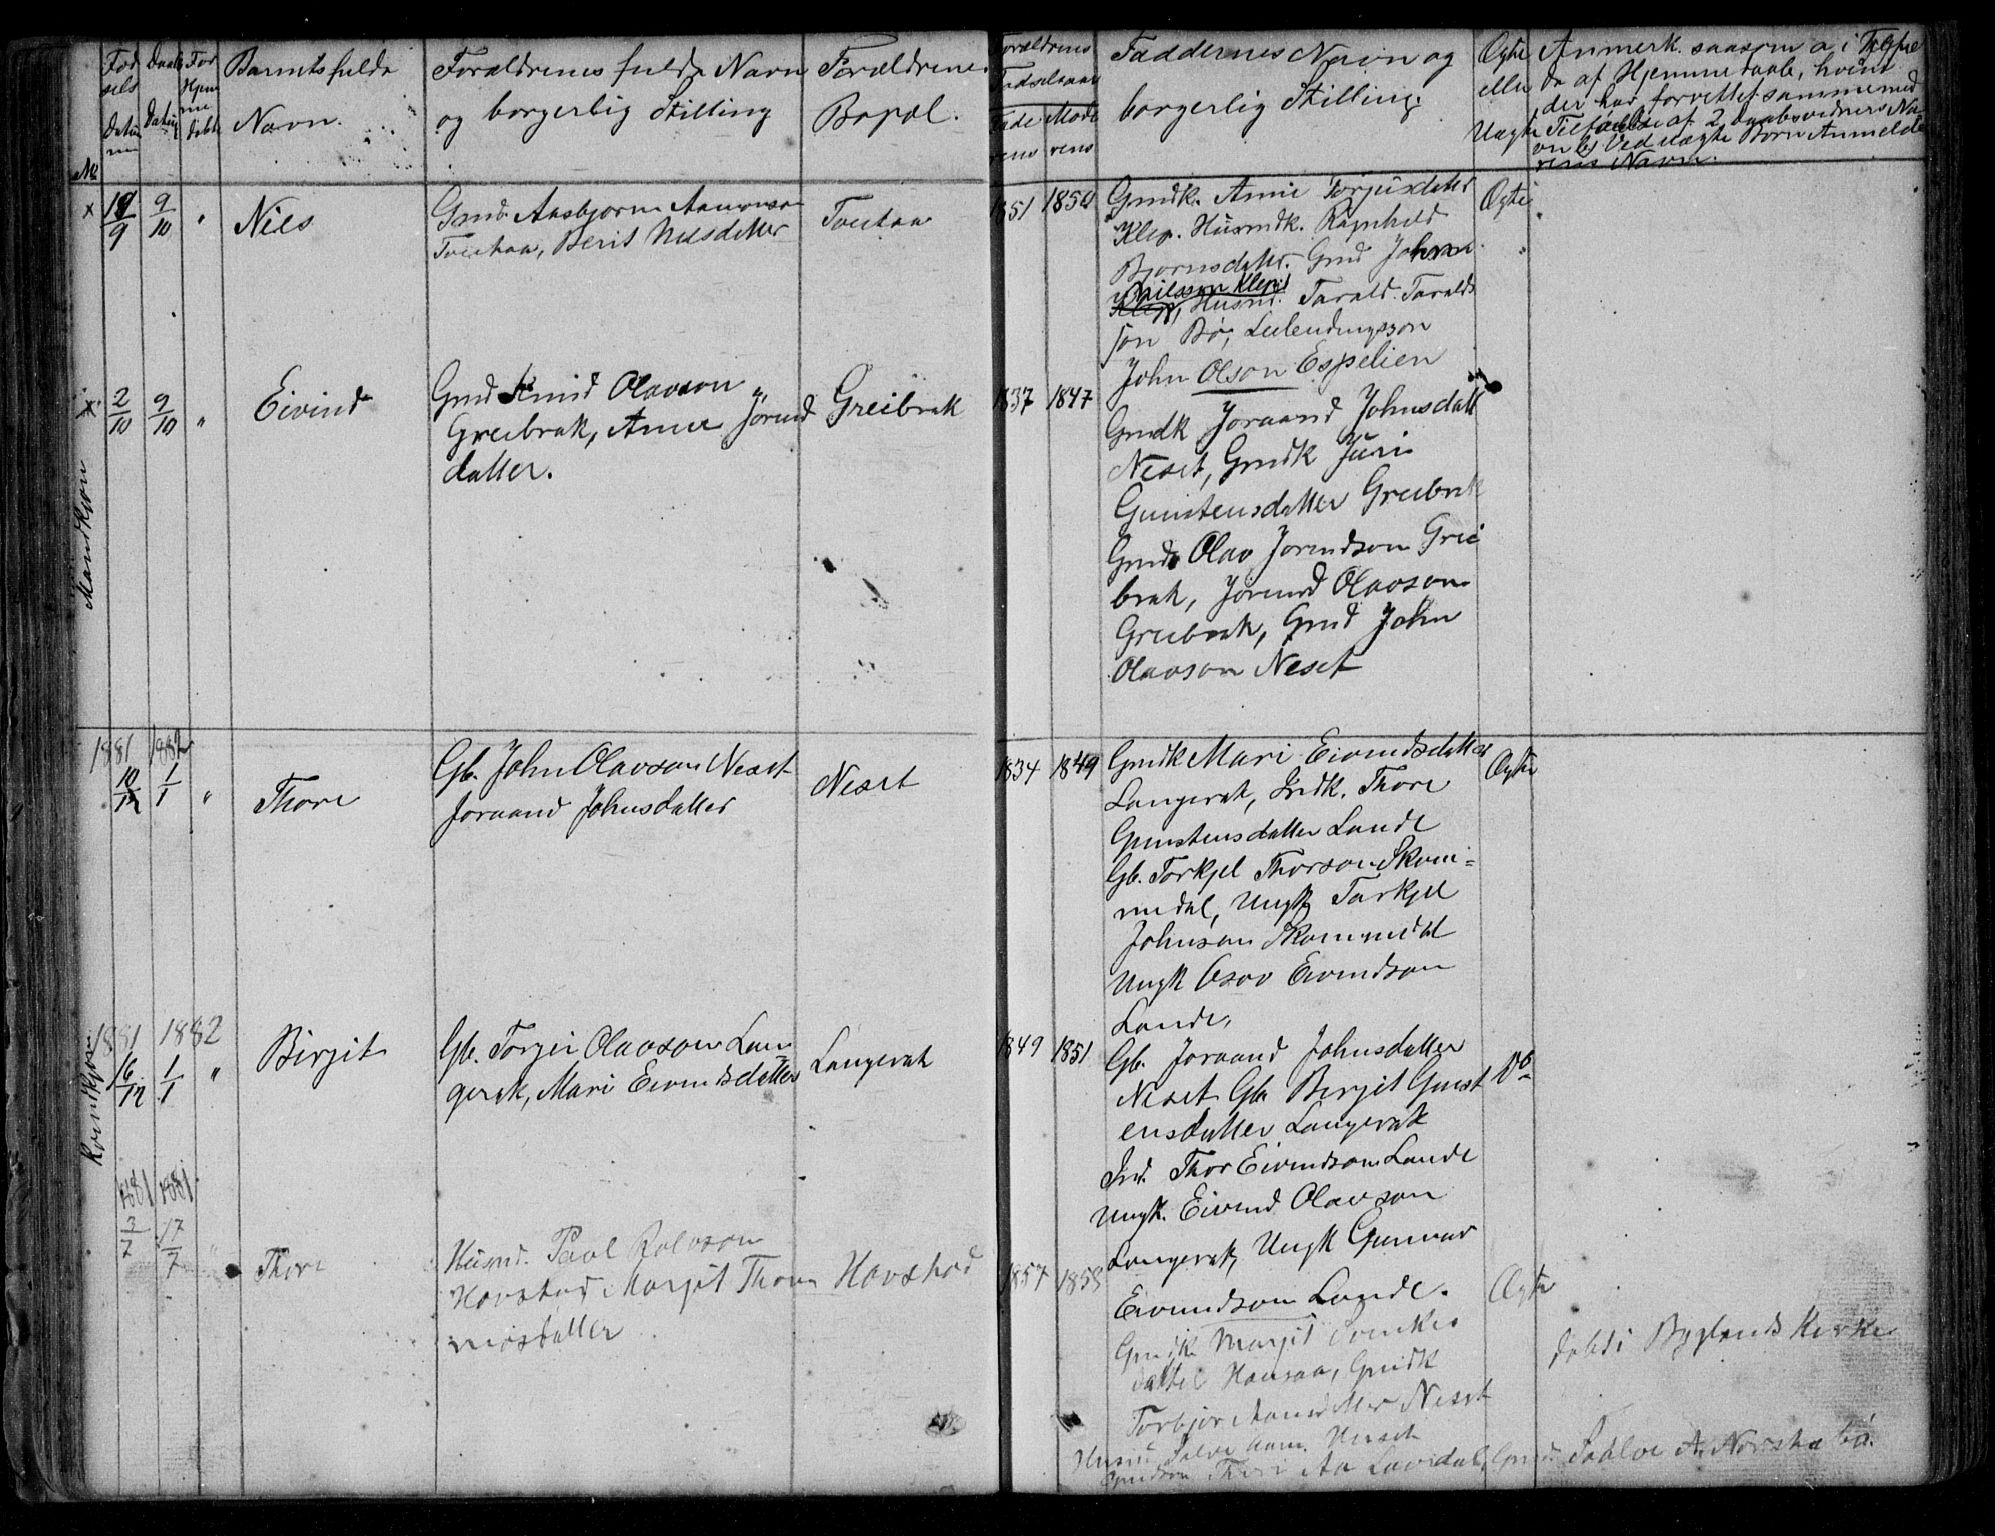 Fød
sels
datum
Daabs
Datum
For
Hjem
me
døbt
Barnets fulde
Navn.
Forældrenes fulde Navn
og borgerlig Stilling
Forældrenes
Bopæl.
Forældrenes
Fødselsaar
Fade
rens
Mode
rens
Faddernes Navn og
borgerlig Stilling.
Ægte
eller
Uægte
Anmerk. saasom a, i Tilfæl
de af Hjemmedaab, hvem
der har forrettet samme med
Tilføielse af 2 Daabsvidners Na
vn b) Ved uægte Børn Anmelde
rens Navn.
No
x 19/9 9/10 " Niels
Gmd. Aasbjørn Aanonson
Tveitaa, Berit Nilsdatter
Tveitaa
1851 1850
Gmdk. Anne Torjusdatter
Klep. Husmdk. Ragnhild
Bjørnsdatter. Gmd John
Nilsson Klep
Klep, Husm. Tarald Tarald
son Bø, Leilendingsson
John Olson Espelien
Ægte
Mandkjøn
x 2/10 9/10 " Eivind
Gmd Knud Olavson
Greibrak, Anne Jørund
datter.
Greibrak
1837 1847
Gmdk Joraand Johnsdatt
Neset, Gmdk Juri
Gunstensdatter Greibrak
Gmd Olav Jorundson Grei
brak, Jorund Olavson
Greibrak, Gmd John
Olavson Neset
1881 1882
10/12 1/1 " Thore
Gb. John Olavson Neset
Joraand Johnsdatter
Neset
1834 1849
Gmdk Mari Eivindsdatter
Langerak, Indk. Thore
Gunstensdatter Lande
Gb. Torkjel Thorson Skom-
medal, Ungk Tarkjel
Johnson Skommedal
Ungk Osov Eivindson
Lande,
Ægte
Kvindkjøn
1881 1882
16/12 1/1 " Birgit
Gb. Torgei Olavson Lan
gerak, Mari Eivindsdatter
Langerak
1849 1851
Gb. Joraand Johnsdatter
Neset Gb. Birgit Gunst
ensdatter Langerak
Ind. Thor Eivindson Lande
Ungk. Eivind Olavson
Langerak, Ungk Gunnar
Eivindson Lande.
Do
1881 1881
3/7 17/7 " Thore
Husmd. Paul Rolvson
Hovstad Margit Thom
mosdatter
Hovstad
1857
Gmdk Margit
datter Gmdk
Torbjør Neset
Husm Salve
Ægte
døbt i Byglands Kirke